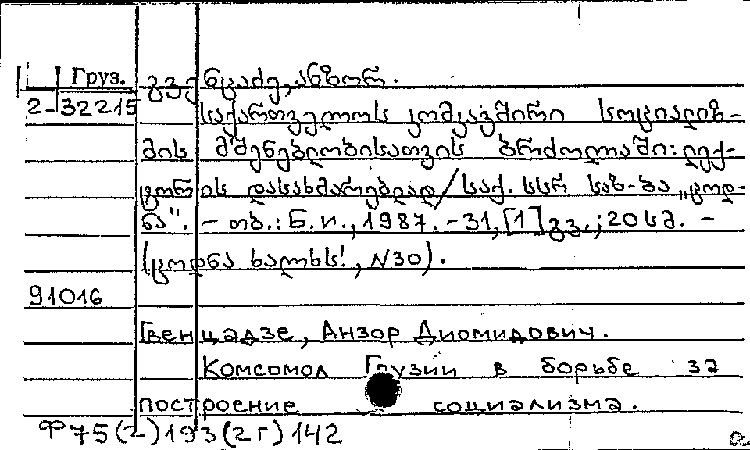 Груз. გვენცაძე, ანზორ.
2-32215 საქართველოს კომკავშირი სოციალიზ-
მის მშენებლობისათვის ბრძოლაში: ლექ-
ტორის დასახმარებლად / საქ. სსრ საზ-ბა „ცოდ-
ნა". – თბ.: ნ. ი., 1987. – 31, [1] გვ.; 20 სმ. –
(ცოდნა ხალხს!, N30).
91016
Гвенцадзе, Анзор Диомидович.
Комсомол Грузии в борьбе за
построение социализма.
Ф75(2)193(2Г)142